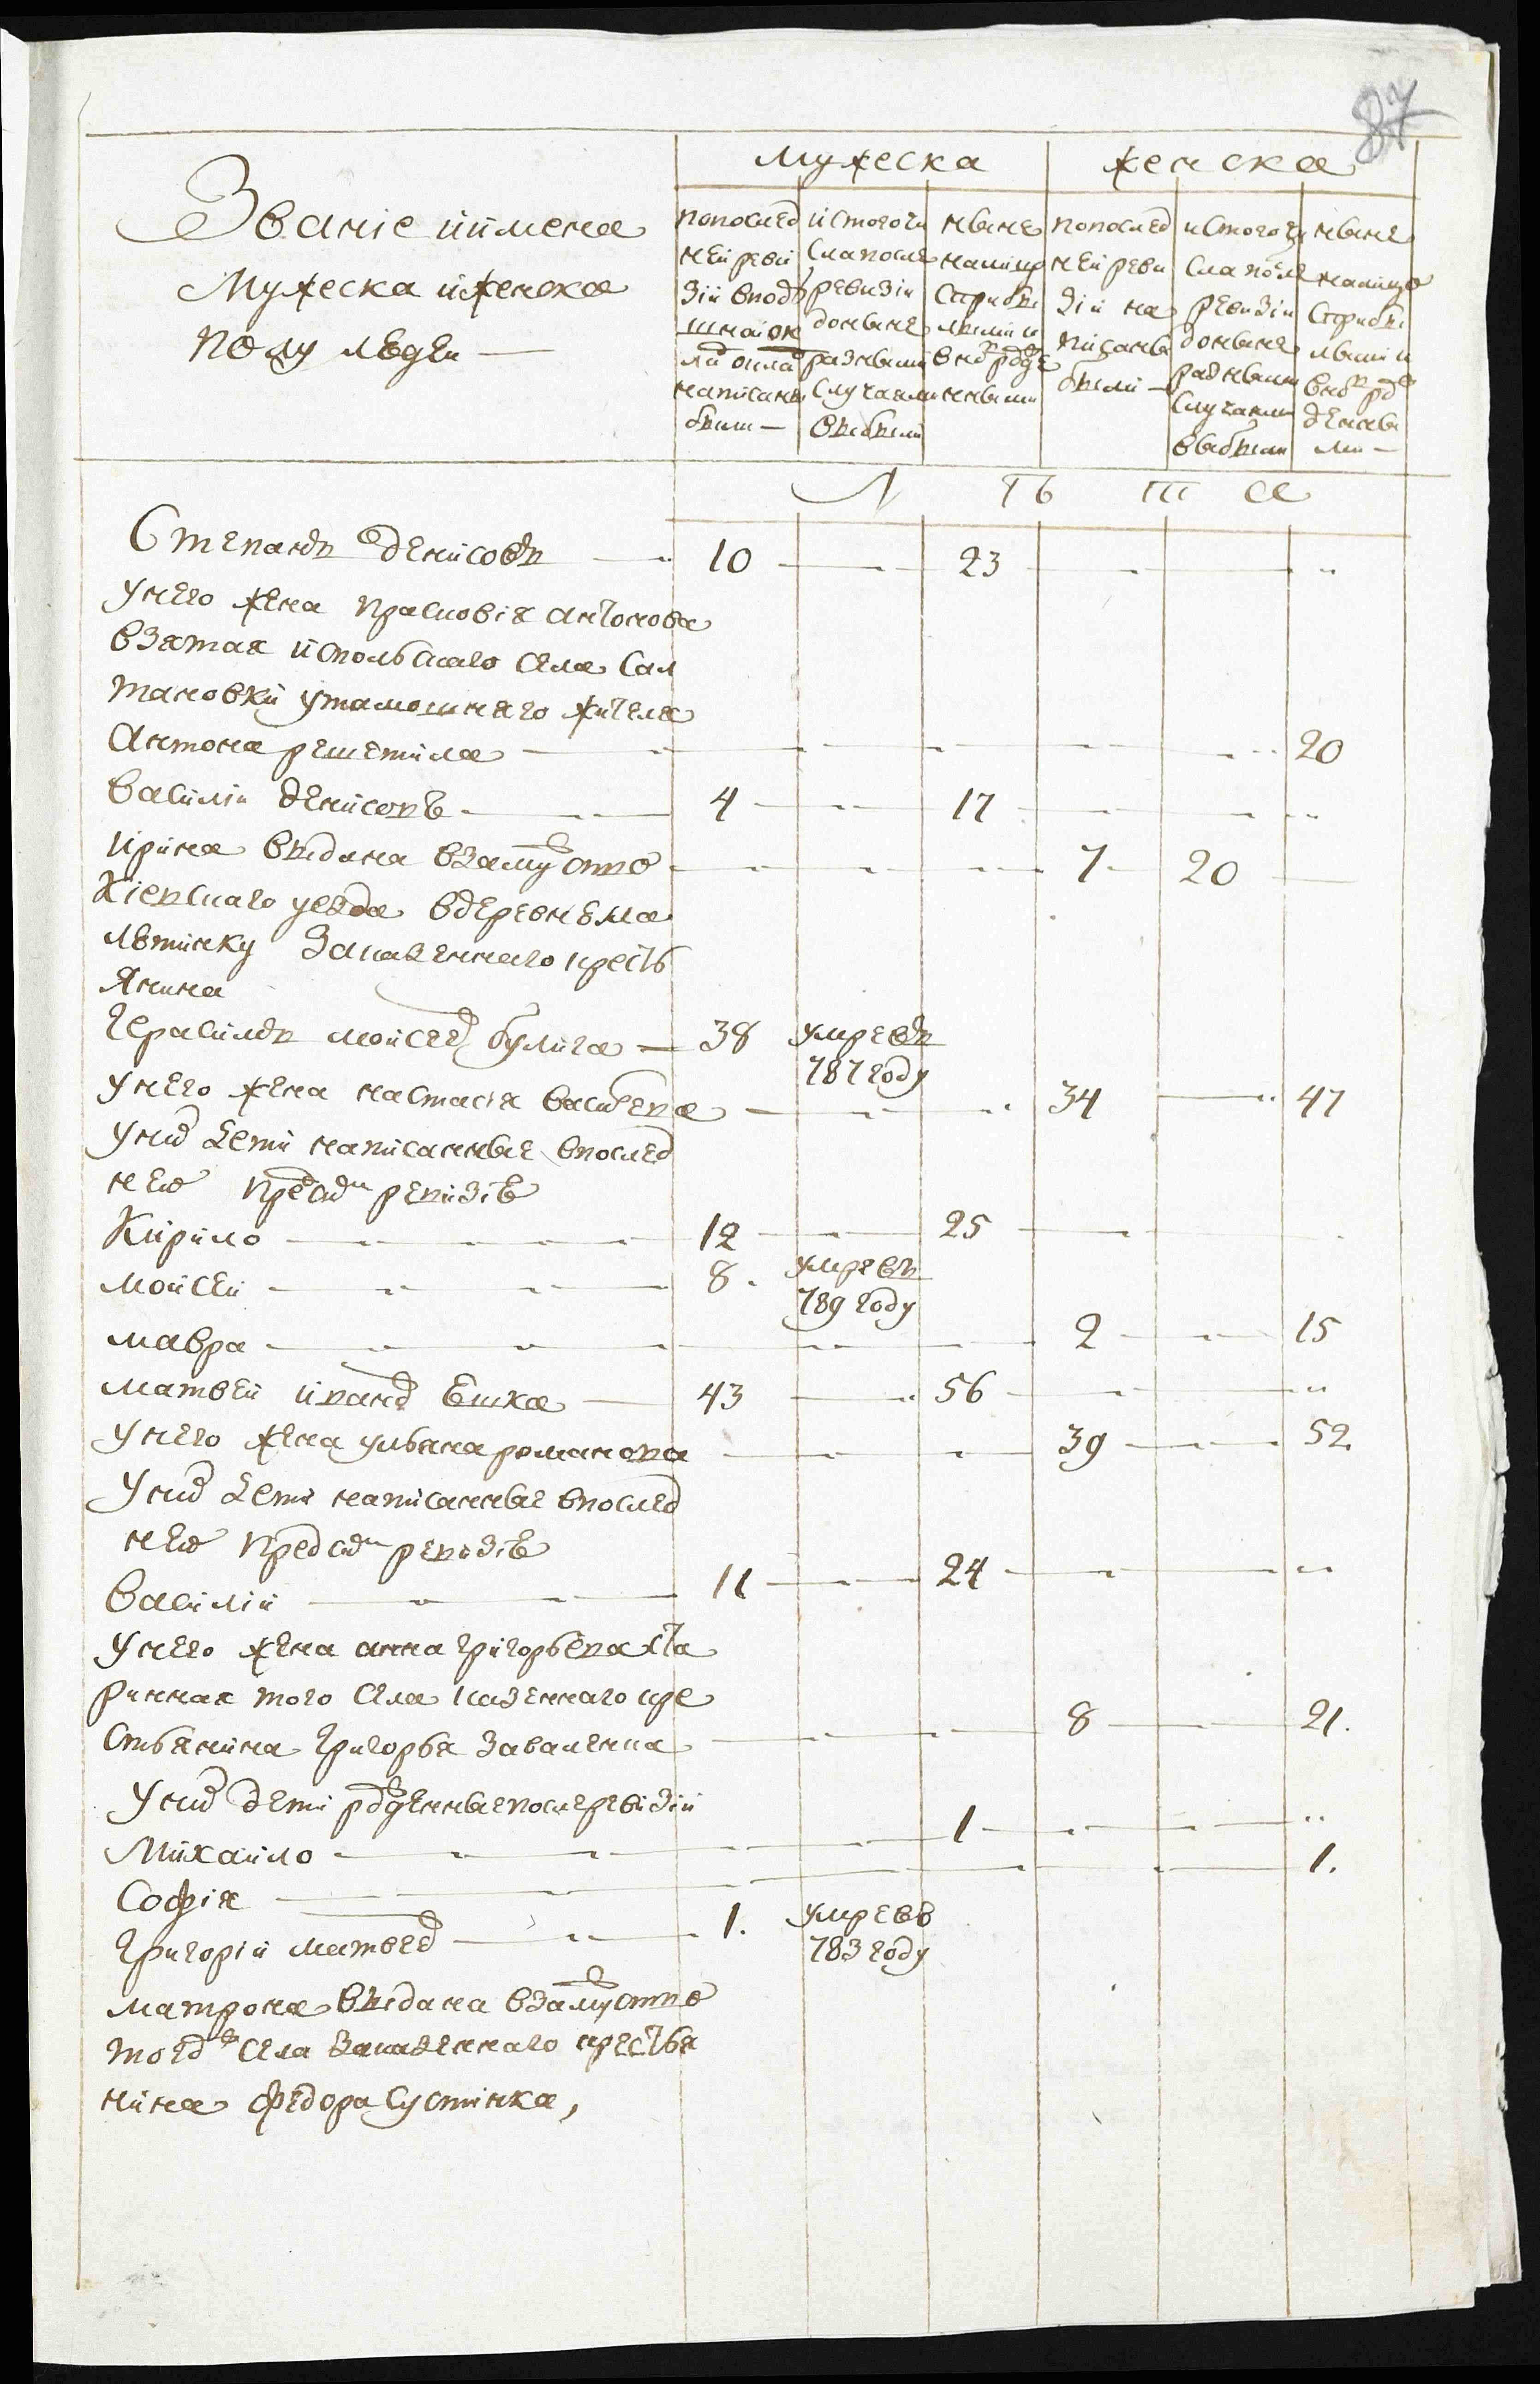 87
Званіе иимена
Мужеска иженска
полу людеи —
Мужеска
женска
попослед
ней реви
зіи вподу
шнои ок
ладъ окла
написаны
были —
истогочи
сла после
ревизіи
доныне
разными
случаями
выбыли
ныне
налицо
сприбы
лыми и
вновь рожде
нными
попослед
ней реви
зіи на
писаны
были —
истогочи
сла после
ревизіи
доныне
разными
случаями
выбыли
ныне
налицо
сприбы
лыми и
вновь рож
денны
ми —
Л Ѣ т а
Степанъ Денисовъ — 10 — 23 —
унего жена прасковія антонова
взятая испольского села Сал
тановки утамошняго жителя
Антона решетила — 20
василіи денисовъ — 4 — 17 —
ирина выдана взамужство — 7 — 20 —
Кіевскаго уезда вдеревнему
лятинку Заказеннаго кресть
янина
Герасимъ моисеевъ булига — 38 умре въ
787 году
унего жена настасія васильева — 34 — 47
унихъ дети написанные впослед
нею предъ симъ ревизіе
Кирило — 12 — 25 —
моисеи — 8 умре въ
789 году
мавра — 2 — 15
матвеи ивановъ ешка — 43 — 56 —
унего жена ульяна романова — 39 — 52
унихъ дети написанные впослед
нею предъ симъ ревизіе
василіи — 11 — 24 —
унего жена анна григорьева ста
ринная того села казеннаго кре
стьянина григорья заваленка — 8 — 21.
унихъ дети рожденные после ревизіи
Михаило — 1 —
Софія — 1.
григоріи матвеевъ — 1. умре въ
783 году
матрона выдана взамужство
тогожъ села заказеннаго крестья
нина федора сустинка,